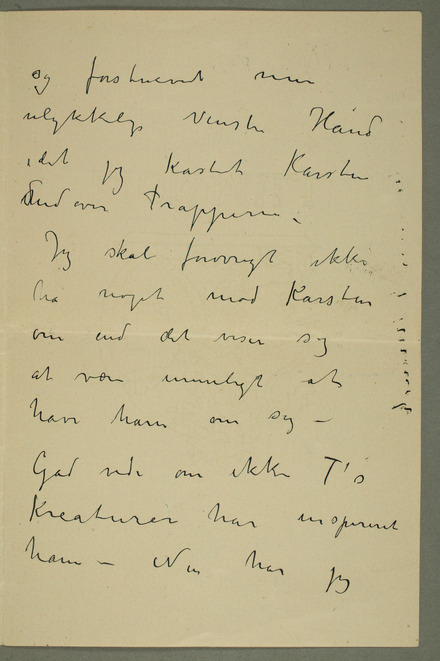 og forstuvet min
ulykkelige venstre Hånd
idet jeg kastet Karsten
udover Trapperne.
Jeg skal forøvrigt ikke
ha noget mod Karsten
om end det viser sig
at være umuligt at
have ham om sig –
Gad vide om ikke T's
Kreaturer har inspireret
ham – Nu har jeg